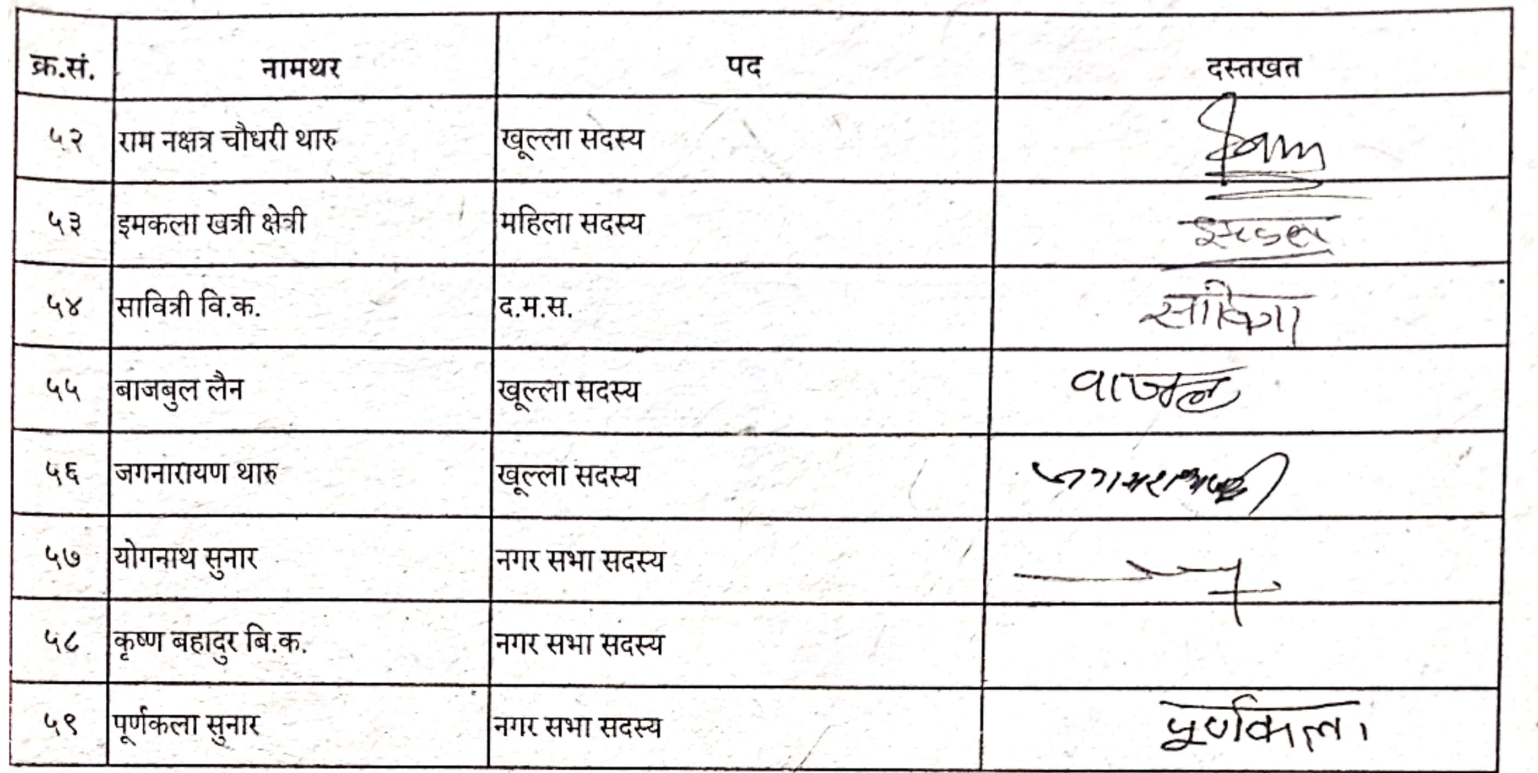 क्र.सं. नामथर पद दस्तखत
५२ राम नक्षत्र चौधरी थारु खूल्ला सदस्य
५३ इमकला खत्री क्षेत्री महिला सदस्य
५४ सावित्री वि.क. द.म.स. सावित्रा
५५ बाजबुल लैन खूल्ला सदस्य
५६ जगनारायण थारु खूल्ला सदस्य
५७ योगनाथ सुनार नगर सभा सदस्य
५८ कृष्ण बहादुर बि.क. नगर सभा सदस्य
५९ पूर्णकला सुनार नगर सभा सदस्य पूर्णकला